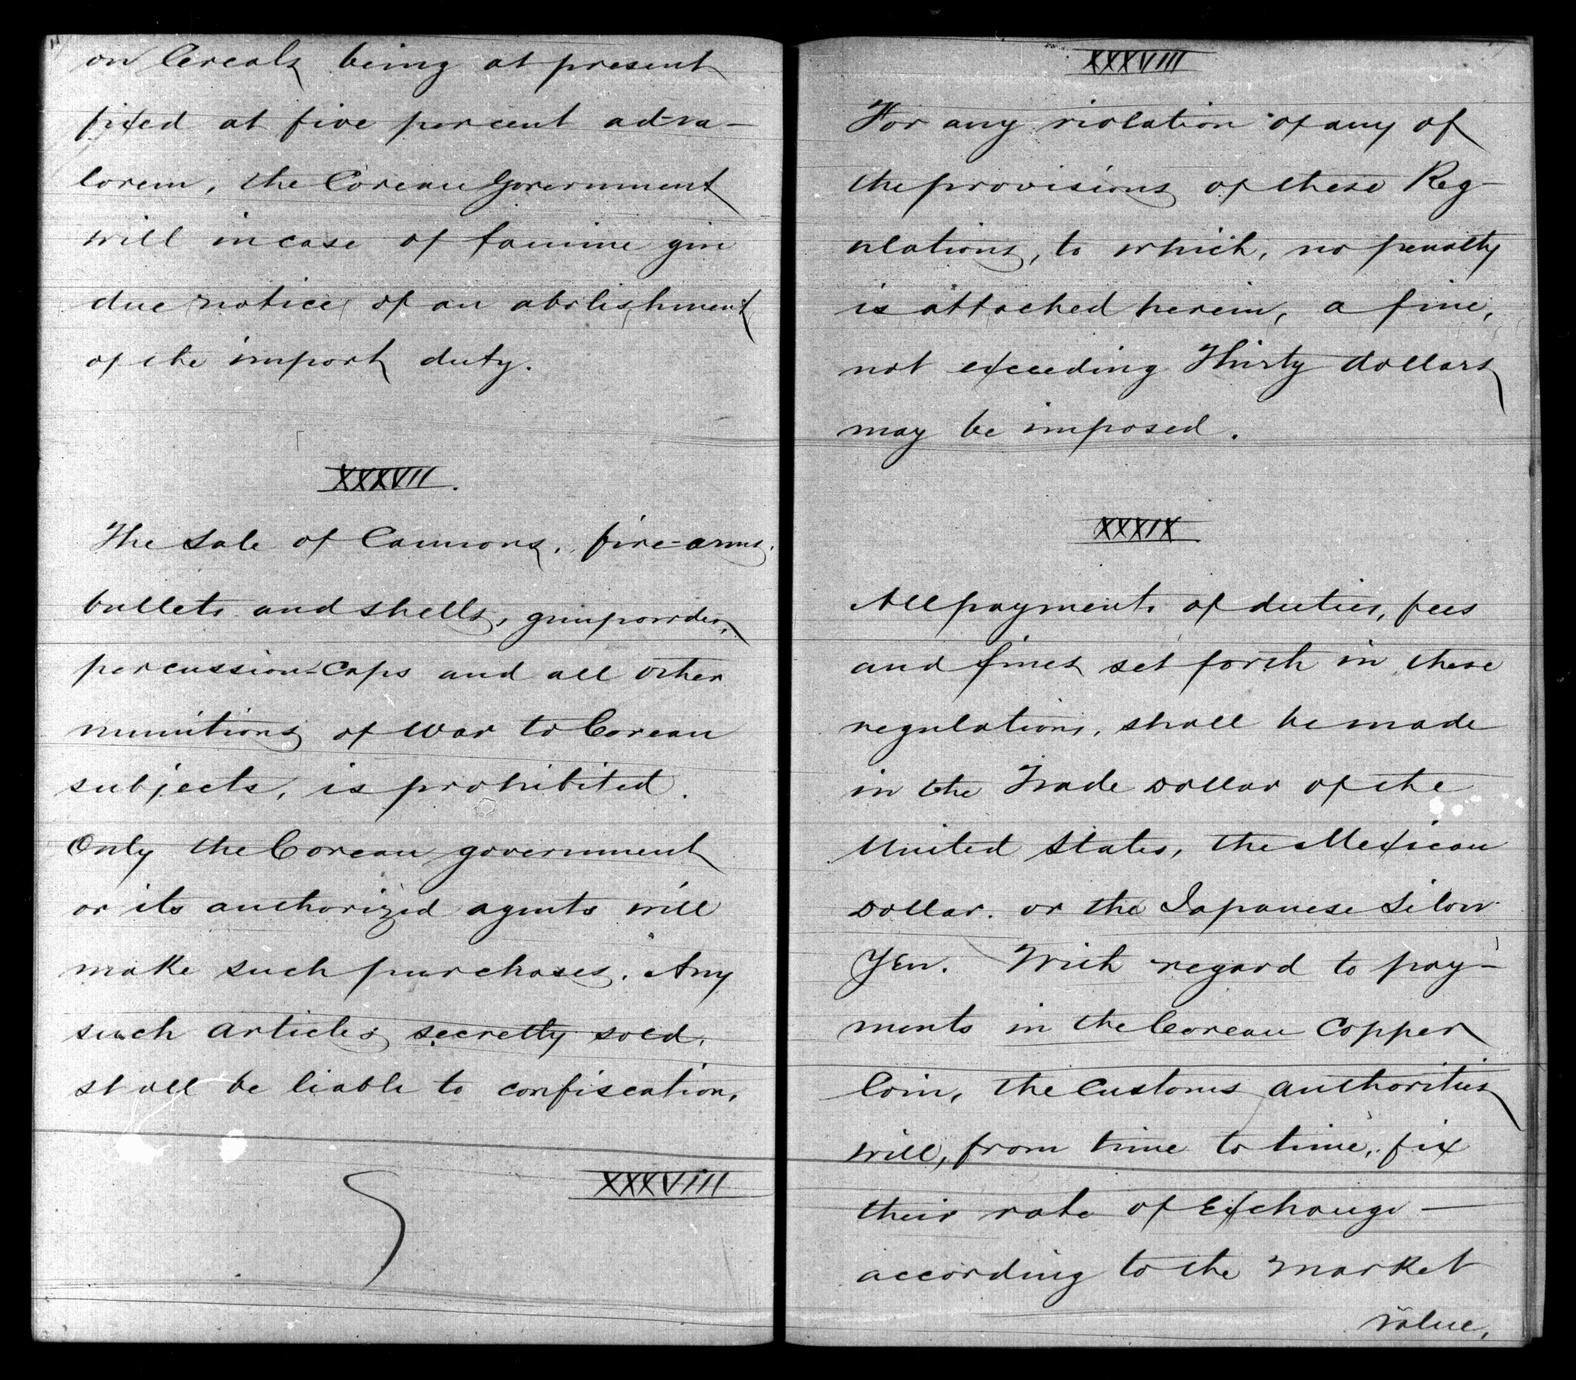 on Cereals being at present
fixed at five per cent ad-va-
lorem, the Corean Government
will in case of famine give
due notice of an abolishment
of the import duty.
XXXVII.
The Sale of Cannons, fire-arms,
bullets and shells, gunpowder,
percussion-caps and all other
munitions of war to Corean
subjects, is prohibited.
Only the Corean government
or its authorized agents will
make such purchases. Any
such articles secretly sold,
shall be liable to confiscation.
XXXVIII
XXXVIII
For any violation of any of
the provisions of these Reg-
ulations, to which, no penalty
is attached herein, a fine,
not exceeding Thirty dollars
may be imposed.
XXXIX
All payments of duties, fees
and fines set forth in these
regulations, shall be made
in the Trade Dollar of the
United States, the Mexican
Dollar. or the Japanese Silver
Yen. With regard to pay-
ments in the Corean Copper
Coin, the Customs authorities
will, from time to time, fix
their rate of Exchange —
according to the market
value,